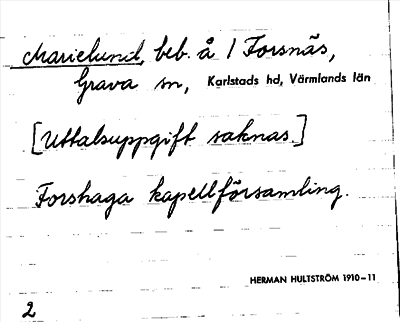 Marielund, beb. å 1 Forsnäs,
Grava sn, Karlstads hd, Värmlands län
[Uttalsuppgift saknas.]
Forshaga kapellförsamling.
HERMAN HULTSTRÖM 1910-11
2